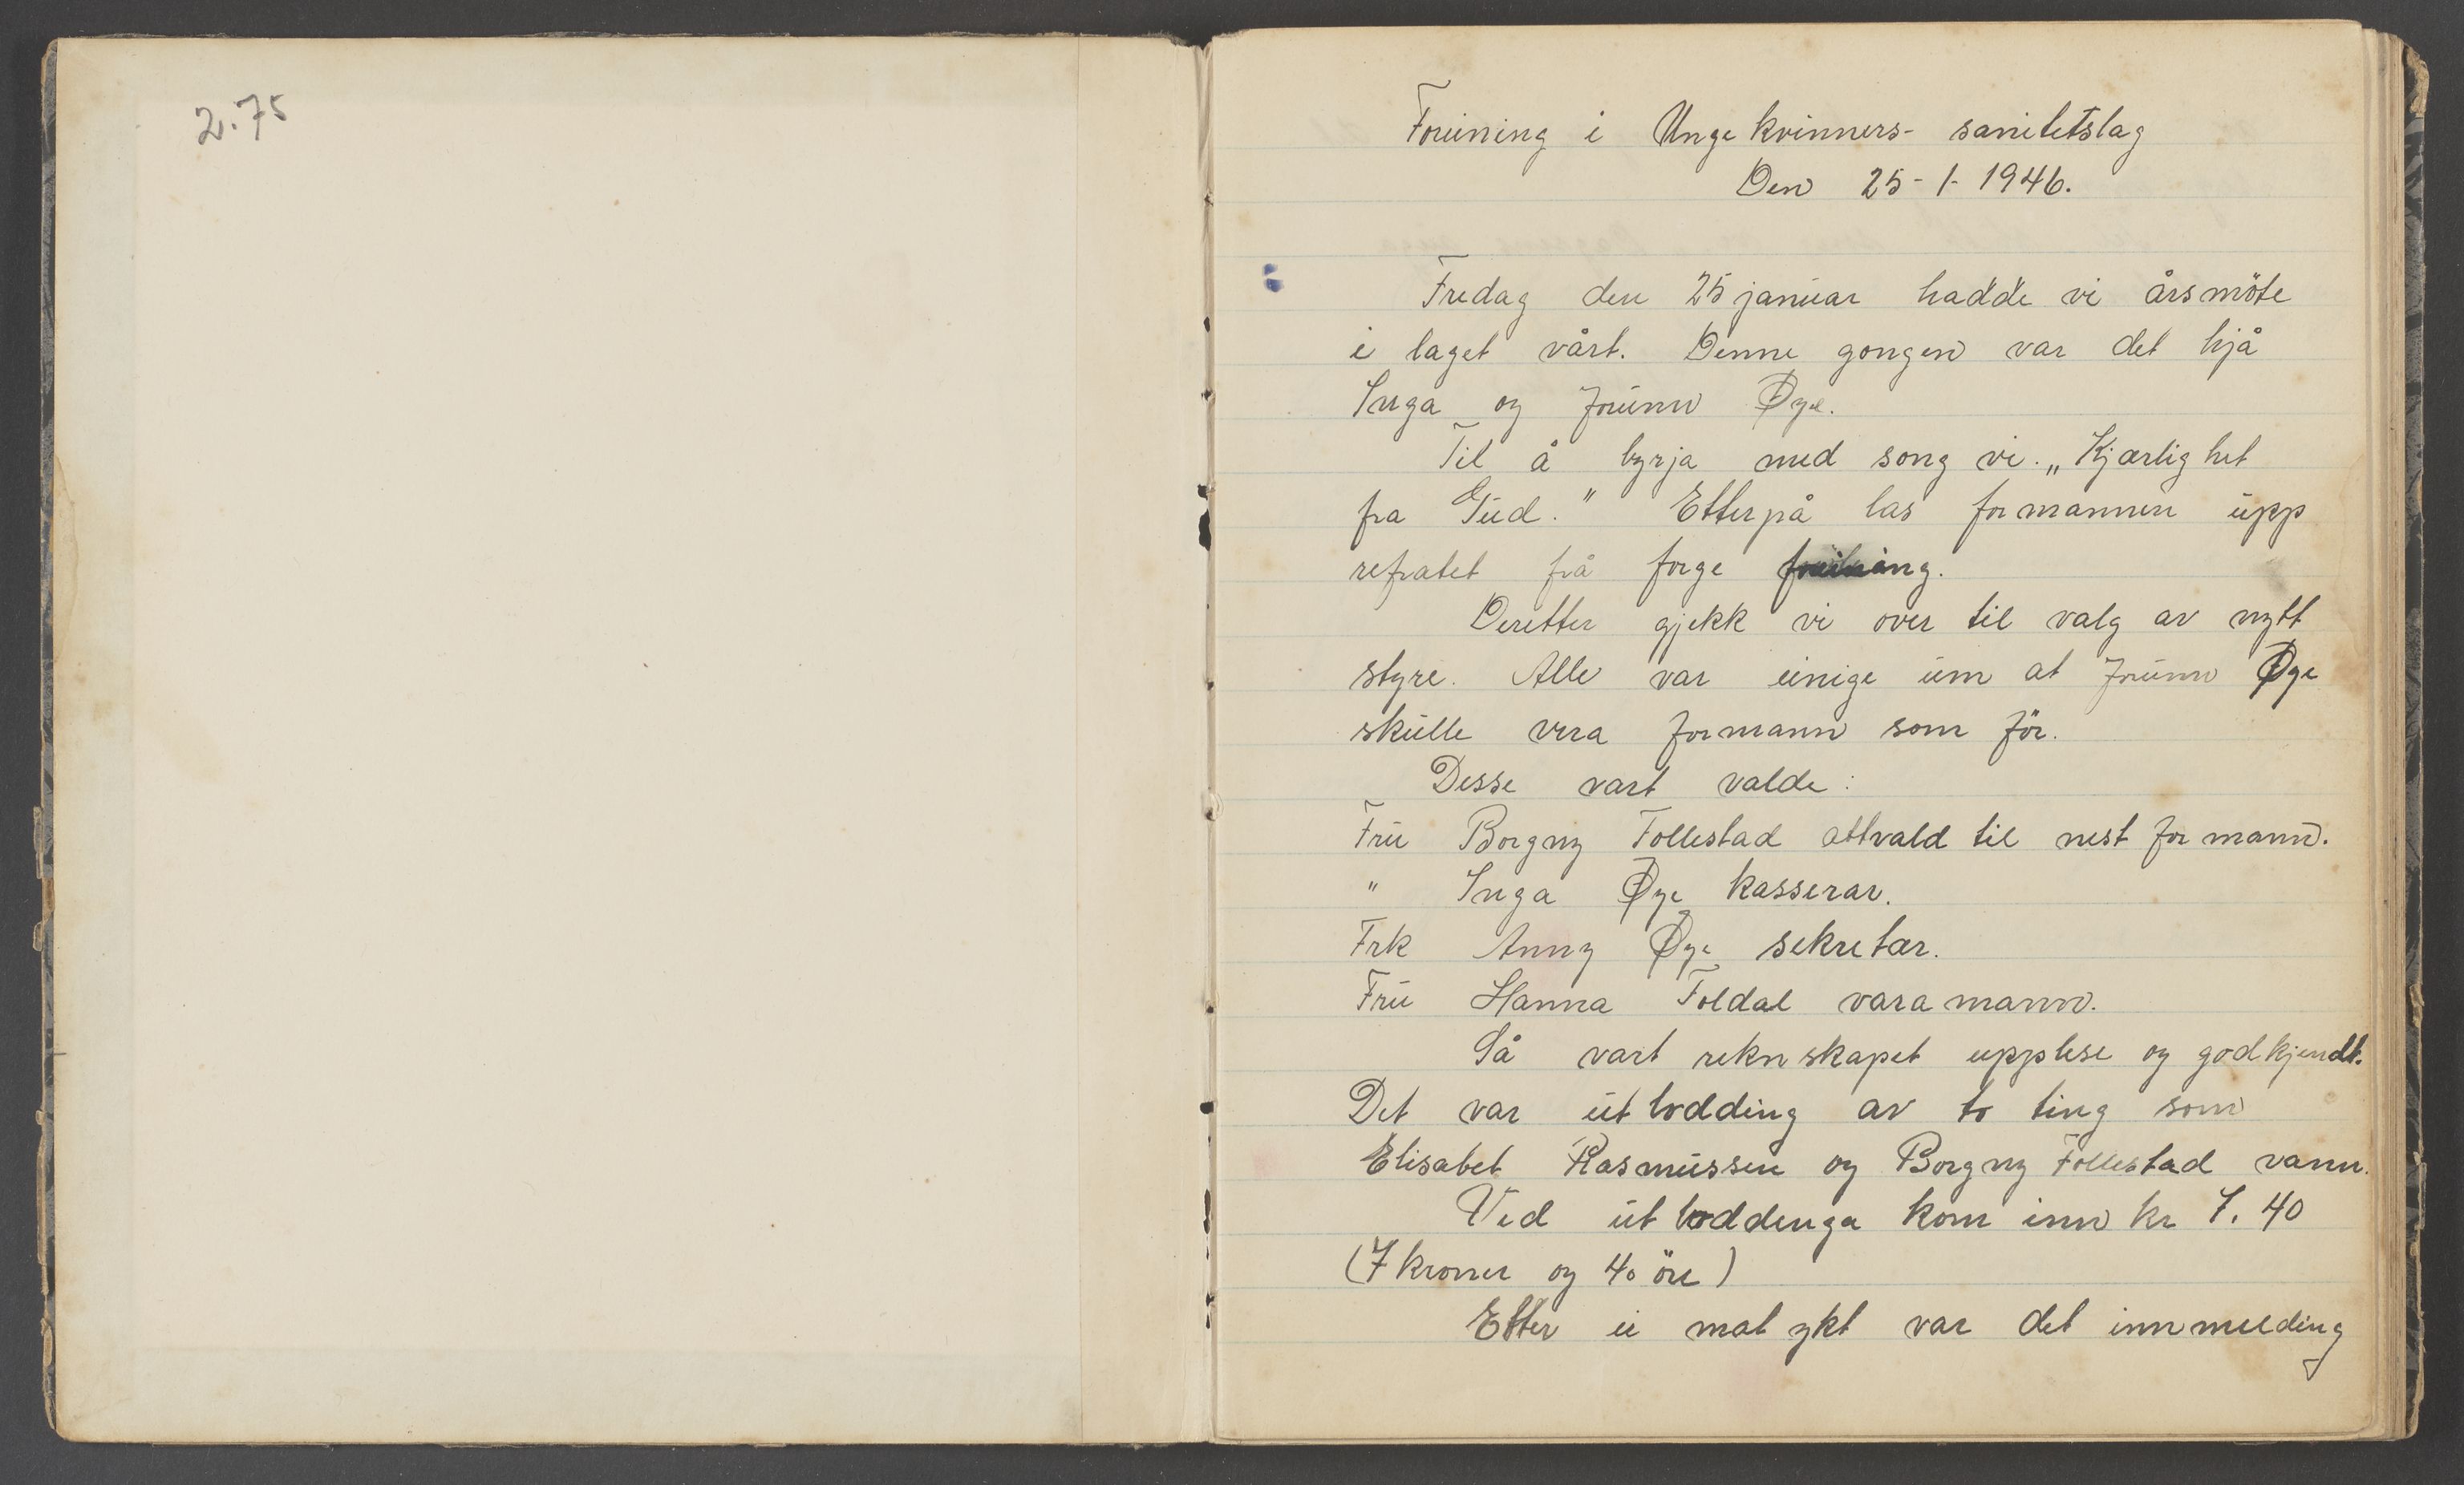 2.75
Foreining i Unge kvinners- sanitetslag
Den 25-1-1946.
Fredag den 25 januar hadde vi årsmöte
i laget vårt. Denne gongen var det hjå
Inga og Jorunn Øye.
Til å byrja med song vi. „Kjærlighet
fra Gud." Etterpå las formannen upp
refratet frå forge foreining.
Deretter gjekk vi over til valg av nytt
styre. Alle var einige um at Jorunn Øye
skulle vera formann som för.
Desse vart valde:
Fru Borgny Follestad attvald til nest formann.
" Inga Øye kasserar.
Frk Anny Øye sekretær.
Fru Hanna Foldal varamann.
Så vart reknskapet upplese og godkjendt.
Det var utlodding av to ting som
Elisabet Rasmussen og Borgny Follestad vann.
Ved utloddenga kom inn kr 7.40
(7 kroner og 40 öre)
Etter ei matykt var det innmelding